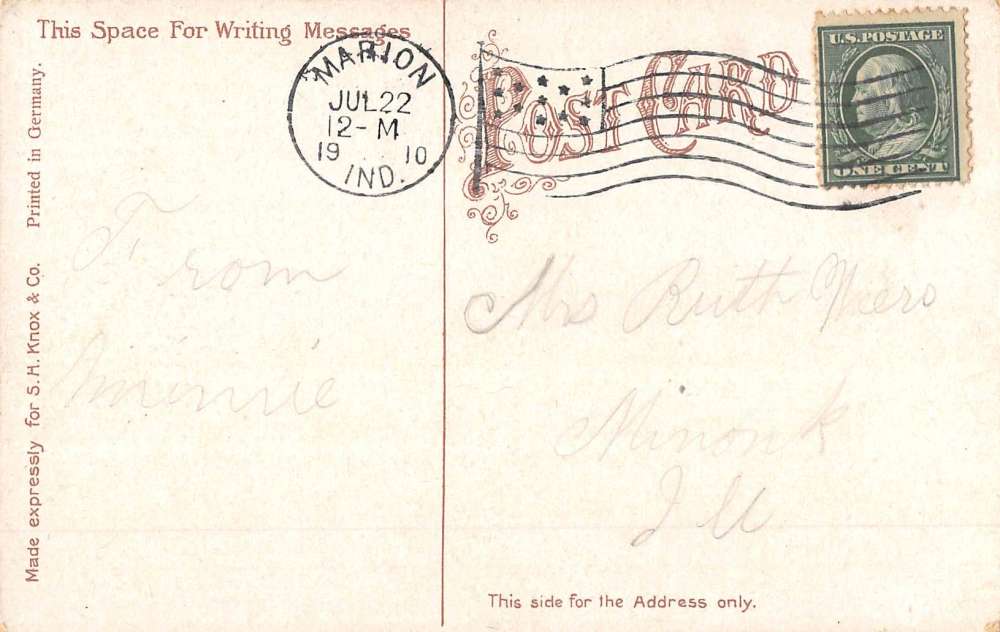 This Space For Writing Messages
MARION
JUL 22
12-M
19 10
IND.
POST CARD
U.S. POSTAGE
ONE CENT
Printed in Germany.
Made expressly for S. H. Knox & Co.
From
Minnie
Mrs Ruth
Minonk
Ill
This side for the Address only.